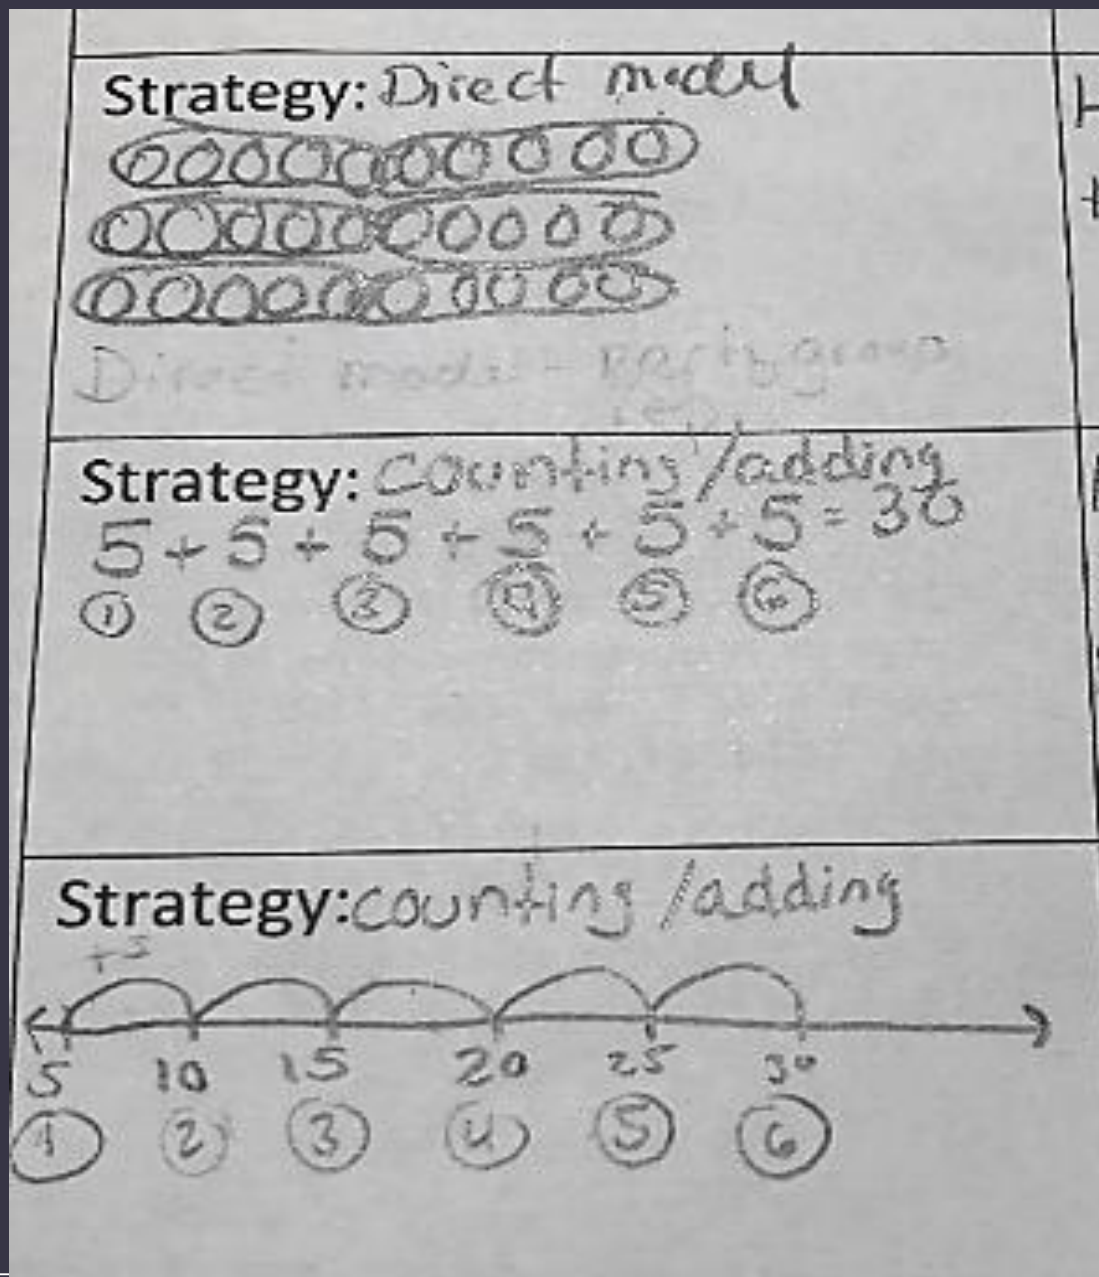 Strategy: Direct model
Direct model - group
Strategy: counting/adding
5 + 5 + 5 + 5 + 5 + 5 = 30
① ② ③ ④ ⑤ ⑥
Strategy: counting/adding
+5
5 10 15 20 25 30
① ② ③ ④ ⑤ ⑥